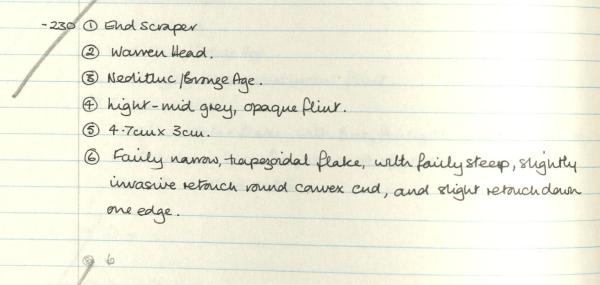 -230 ① End Scraper
② Warren Head.
③ Neolithic/Bronze Age.
④ Light-mid grey, opaque flint.
⑤ 4.7cm x 3cm.
⑥ Fairly narrow, trapezoidal flake, with fairly steep, slightly
invasive retouch round convex end, and slight retouch down
one edge.
⑧ 6